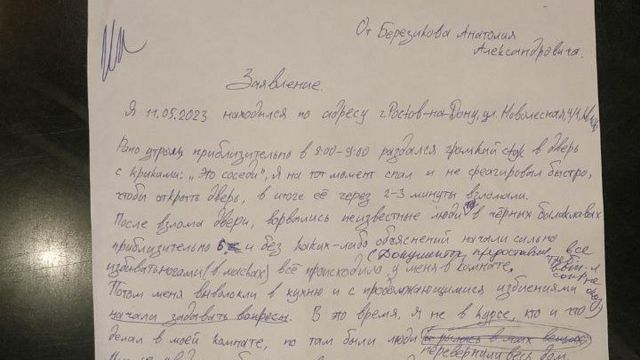 От Березикова Анатолия
Александровича.
Заявление.
Я 11.05.2023 находился по адресу г.Ростов-на-Дону, ул. Новолесная,
Рано утром, приблизительно в 8:00-9:00 раздался громкий стук в дверь
с криками: „Это соседи", я на тот момент спал и не среагировал быстро,
чтобы открыть дверь, в итоге её через 2-3 минуты взломали.
После взлома двери, ворвались неизвестные люди в чёрных балаклавах
приблизительно 6 и без каких-либо объяснений начали сильно
(Документы, предоставили, все
избивать ногами (в масках) всё происходило у меня в комнате,
Потом меня выволокли в кухню и с продолжающимися избиениями
начали задавать вопросы. В это время, я не в курсе, кто и что
делал в моей комнате, но там были люди и рылись в моих вещах.
перевернули весь дом